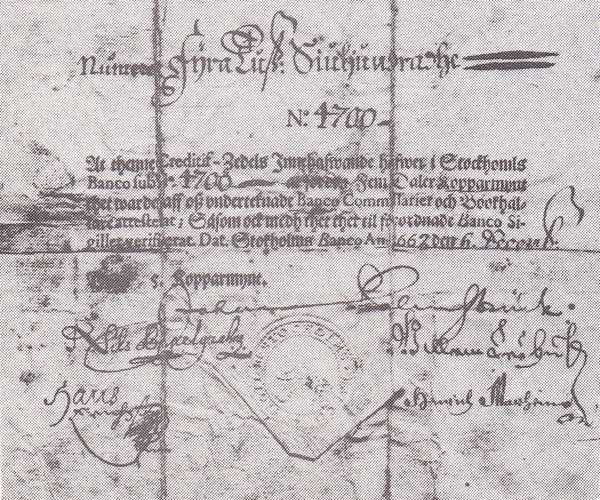 Numero Fyra Tus: Siuhundrade
N:o 4700
At thenne Creditif-Zedels Innehafwande hafwer i Stockholms
Banco sub N:o 4700 at fordra Fem Daler Kopparmynt
thet warder aff oß underteknade Banco Commissarier och Bookhål-
lare attesterat; Såsom ock medh thet ther til förordnade Banco Si-
gillet verifierat. Dat. Stockholms Banco An. 1662 den 6. Decemb.
5. Kopparmynt.
Hans
Hinrich